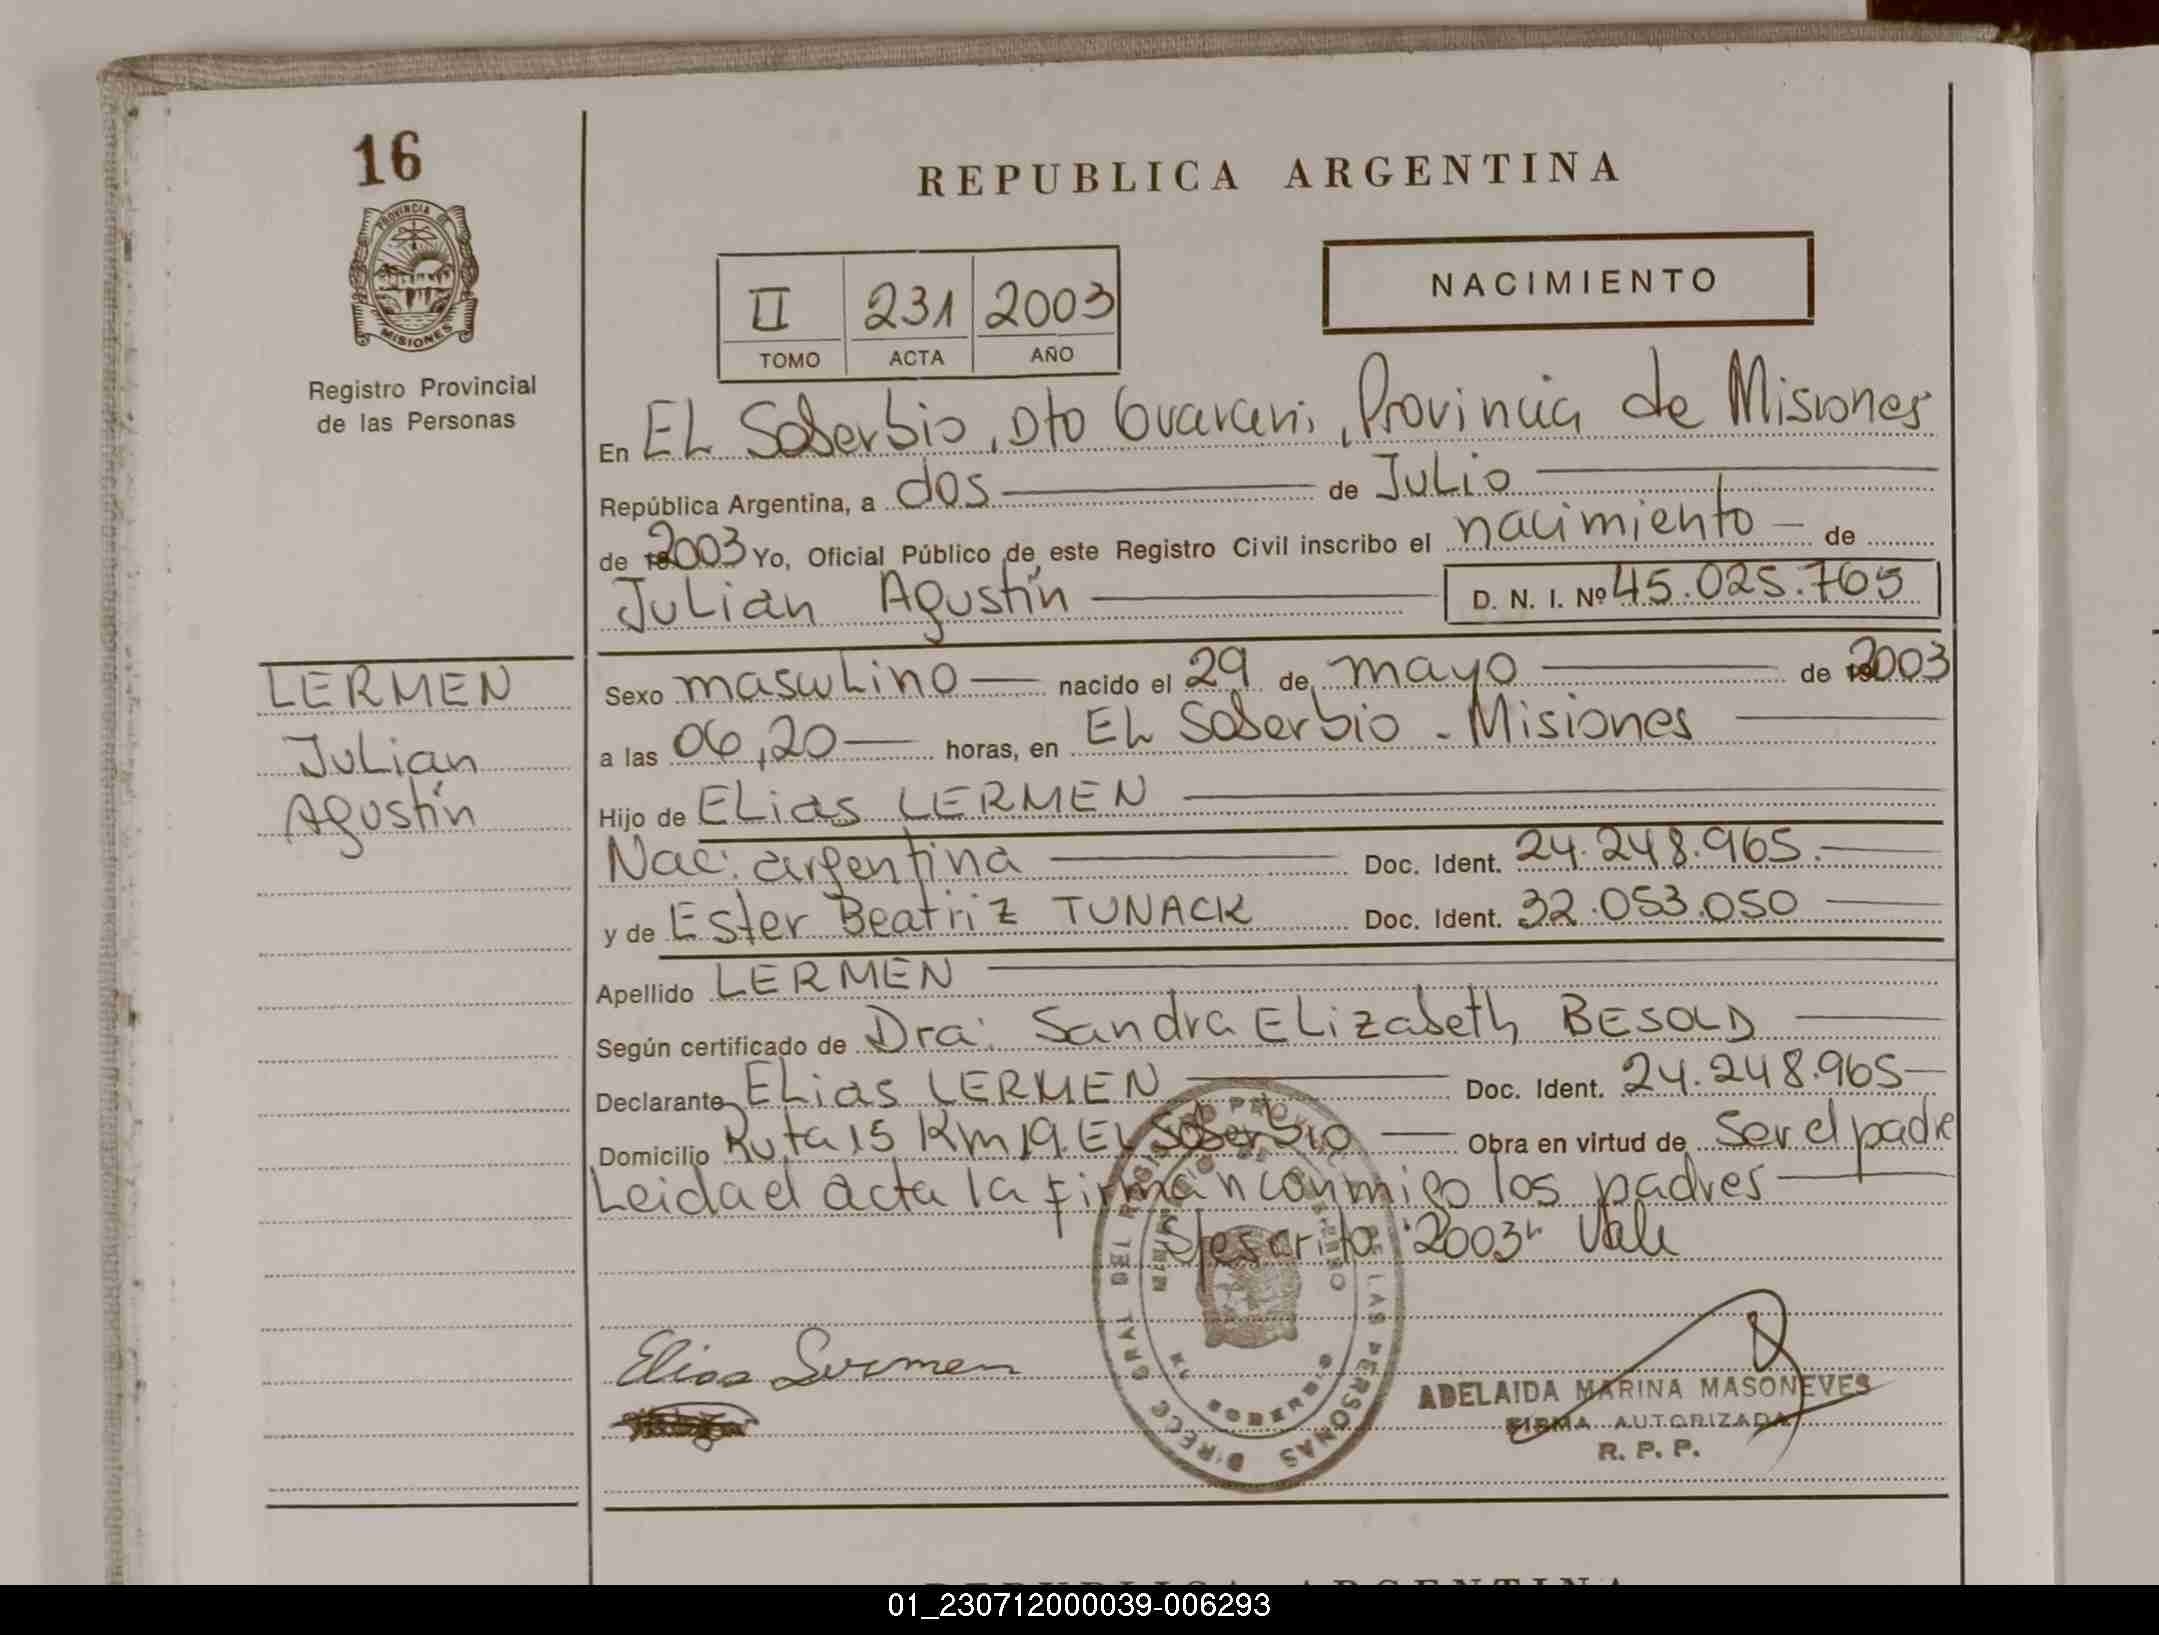 16
PROVINCIA DE
MISIONES
Registro Provincial
de las Personas
REPUBLICA ARGENTINA
II 231 2003
TOMO ACTA AÑO
NACIMIENTO
En EL Soberbio, Dto Guarani, Provincia de Misiones
República Argentina, a dos de Julio
de 2003 Yo, Oficial Público de este Registro Civil inscribo el nacimiento de
Julian Agustín D. N. I. Nº 45.025.765
LERMEN
Julian
Agustín
Sexo masculino nacido el 29 de mayo de 2003
a las 06,20 horas, en EL Soberbio - Misiones
Hijo de Elias LERMEN
Nac: argentina Doc. Ident. 24.248.965.
y de Ester Beatriz TUNACK Doc. Ident. 32.053.050
Apellido LERMEN
Según certificado de Dra: Sandra Elizabeth BESOLD
Declarante Elias LERMEN Doc. Ident. 24.248.965
Domicilio Ruta 15 Km 19. EL Soberbio Obra en virtud de Ser el padre
Leida el acta la firman conmigo los padres
S/escrito "2003" Vale
Elias Lermen
ADELAIDA MARINA MASONEVES
FIRMA AUTORIZADA
R. P. P.
REPUBLICA ARGENTINA
01_230712000039-006293